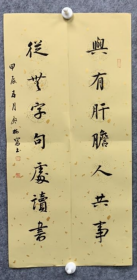 與有肝膽人共事
從無字句處讀書
甲辰五月